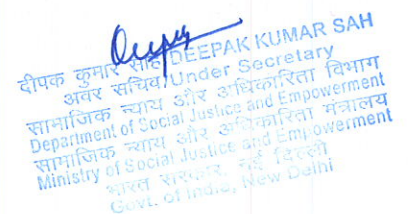 दीपक कुमार साह/DEEPAK KUMAR SAH
अवर सचिव/Under Secretary
सामाजिक न्याय और अधिकारिता विभाग
Department of Social Justice and Empowerment
सामाजिक न्याय और अधिकारिता मंत्रालय
Ministry of Social Justice and Empowerment
भारत सरकार, नई दिल्ली
Govt. of India, New Delhi